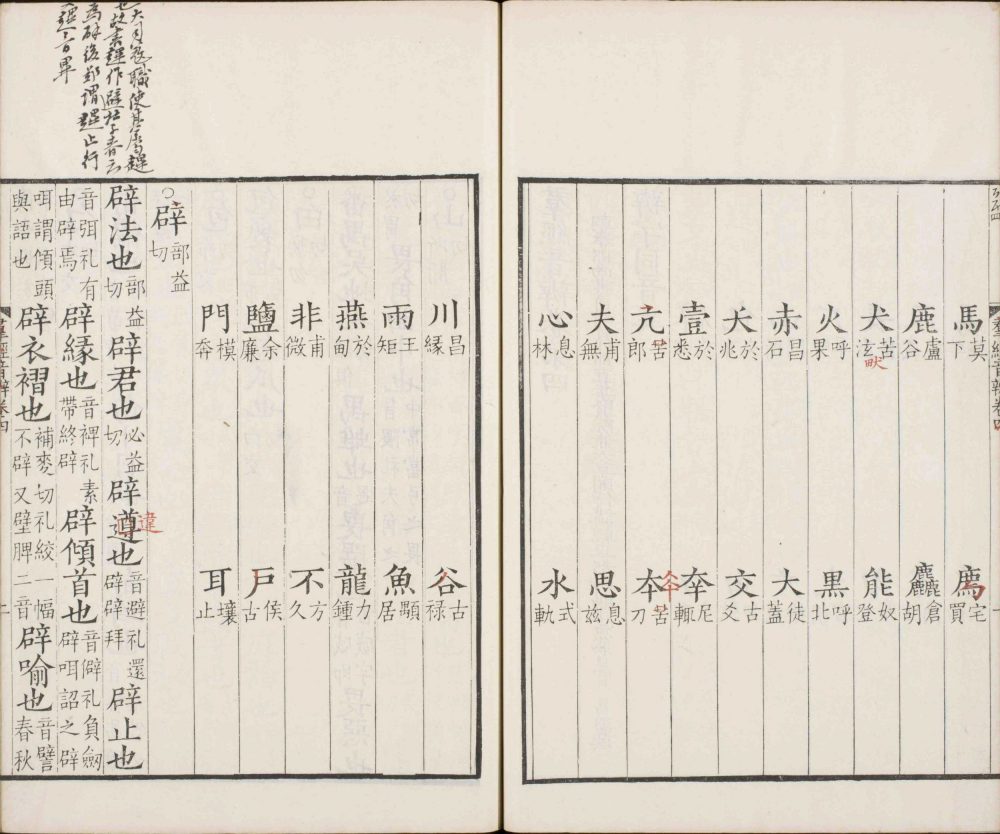 馬莫下 廌宅買
鹿盧谷 麤倉胡
犬苦泫 畎 能奴登
火呼果 黑呼北
赤昌石 大徒蓋
夭於兆 交古爻
壹於悉 㚔尼輒
亢苦郎 夲苦刀
夫甫無 思息茲
心息林 水式軌
羣經音辨卷四
川昌緣 谷古祿
雨王矩 魚顒居
燕於甸 龍力鍾
非甫微 不方久
鹽余廉 戶侯古
門模奔 耳壤止
辟部益切
辟法也部益切辟君也必益切辟遵也違音避礼還辟辟拜辟止也
音弭礼有由辟焉辟緣也音裨礼素帶終辟辟傾首也音僻礼負劒辟咡詔之辟
咡謂傾頭與語也辟衣褶也補麥切礼絞一幅不辟又壁脾二音辟喻也音譬春秋
羣經音辨卷四